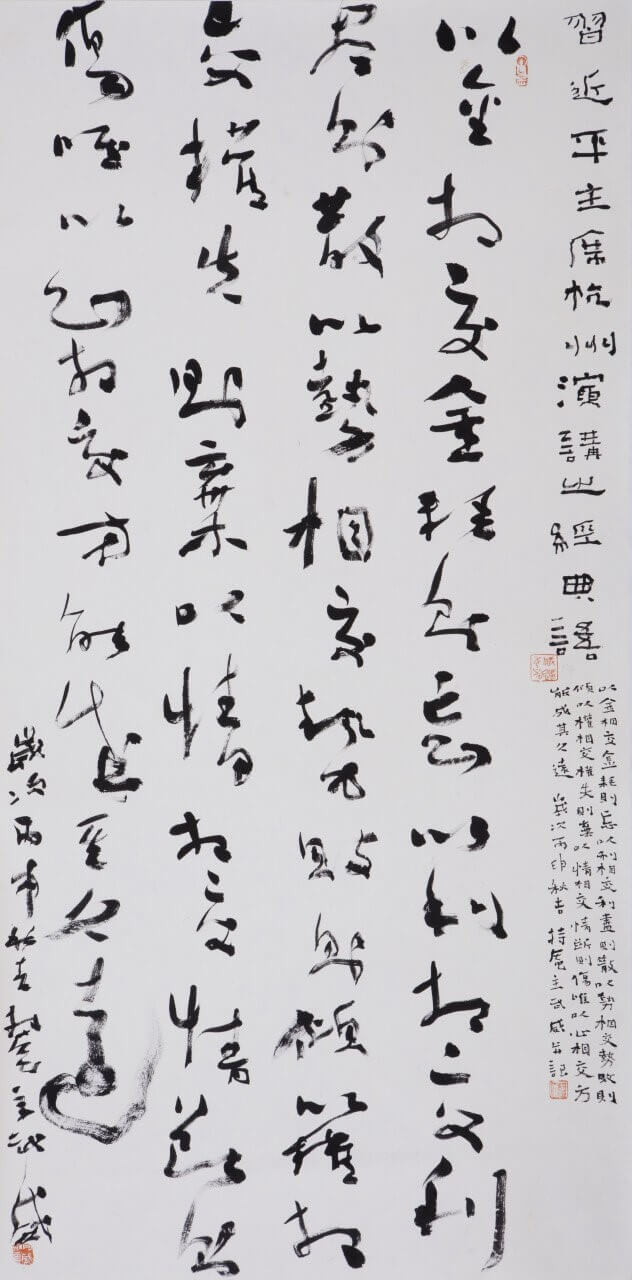 習近平主席杭州演講之經典語
以金相交金耗則忘以利相交利盡則散以勢相交勢敗則
傾以權相交權失則棄以情相交情斷則傷唯以心相交方
能成其久遠 歲次丙申秋吉 持庵主武威并記
以金相交金耗則忘以利相交利
盡則散以勢相交勢敗則傾以權相
交權失則棄以情相交情斷則
傷唯以心相交方能成其久遠
歲次丙申秋吉持庵主武威